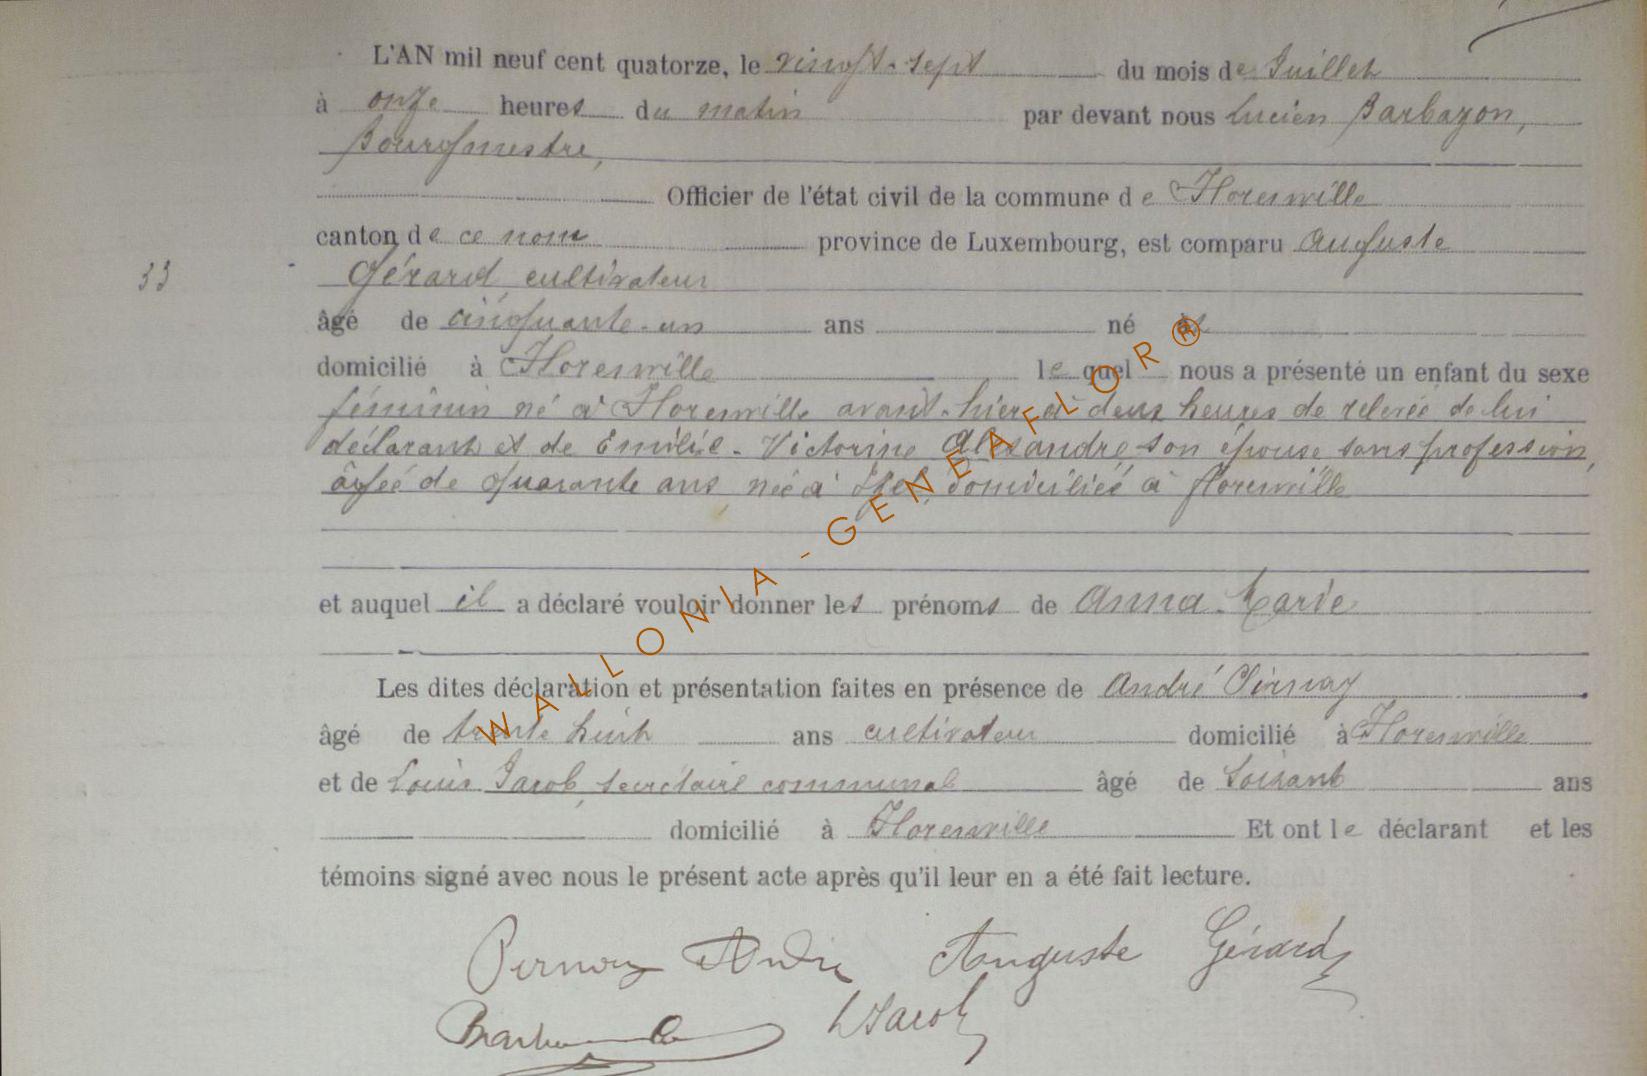 L'AN mil neuf cent quatorze, le vingt-sept du mois de Juillet
à onze heures du matin par devant nous Lucien Barbazon,
Bourgmestre,
Officier de l'état civil de la commune de Florenville
canton de ce nom province de Luxembourg, est comparu Auguste
33
Gérard, cultivateur
âgé de cinquante-un ans né à
domicilié à Florenville lequel nous a présenté un enfant du sexe
féminin né à Florenville avant-hier à deux heures de relevée de lui
déclarant et de Emilie-Victorine Alexandre son épouse sans profession,
âgée de quarante ans, née à domiciliée à Florenville
et auquel il a déclaré vouloir donner les prénoms de Anna-Marie
Les dites déclaration et présentation faites en présence de André Pirnay
âgé de trente huit ans cultivateur domicilié à Florenville
et de Louis Jacob, secrétaire communal âgé de soixant ans
domicilié à Florenville Et ont le déclarant et les
témoins signé avec nous le présent acte après qu'il leur en a été fait lecture.
Pirnay André Auguste Gérard
LJacob
WALLONIA-GENEAFLOR®